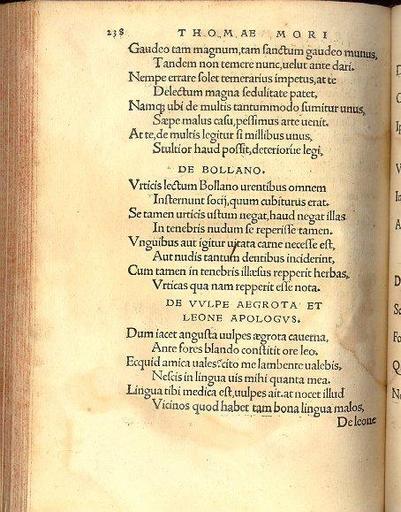 238 THOMAE MORI
Gaudeo tam magnum, tam sanctum gaudeo munus,
Tandem non temere nunc, uelut ante dari.
Nempe errare solet temerarius impetus, at te
Delectum magna sedulitate patet,
Namq; ubi de multis tantummodo sumitur unus,
Sæpe malus casu, pessimus arte uenit.
At te, de multis legitur si millibus unus,
Stultior haud possit, deteriorue legi.
DE BOLLANO.
Vrticis lectum Bollano urentibus omnem
Insternunt socij, quum cubiturus erat.
Se tamen urticis ustum negat, haud negat illas
In tenebris nudum se reperisse tamen.
Vnguibus aut igitur urata carne necesse est,
Aut nudis tantum dentibus inciderint,
Cum tamen in tenebris illæsus repperit herbas,
Vrticas qua nam repperit esse nota.
DE VVLPE AEGROTA ET
LEONE APOLOGVS.
Dum iacet angusta uulpes ægrota cauerna,
Ante fores blando constitit ore leo.
Ecquid amica uales? cito me lambente ualebis,
Nescis in lingua uis mihi quanta mea.
Lingua tibi medica est, uulpes ait. at nocet illud
Vicinos quod habet tam bona lingua malos,
De leone